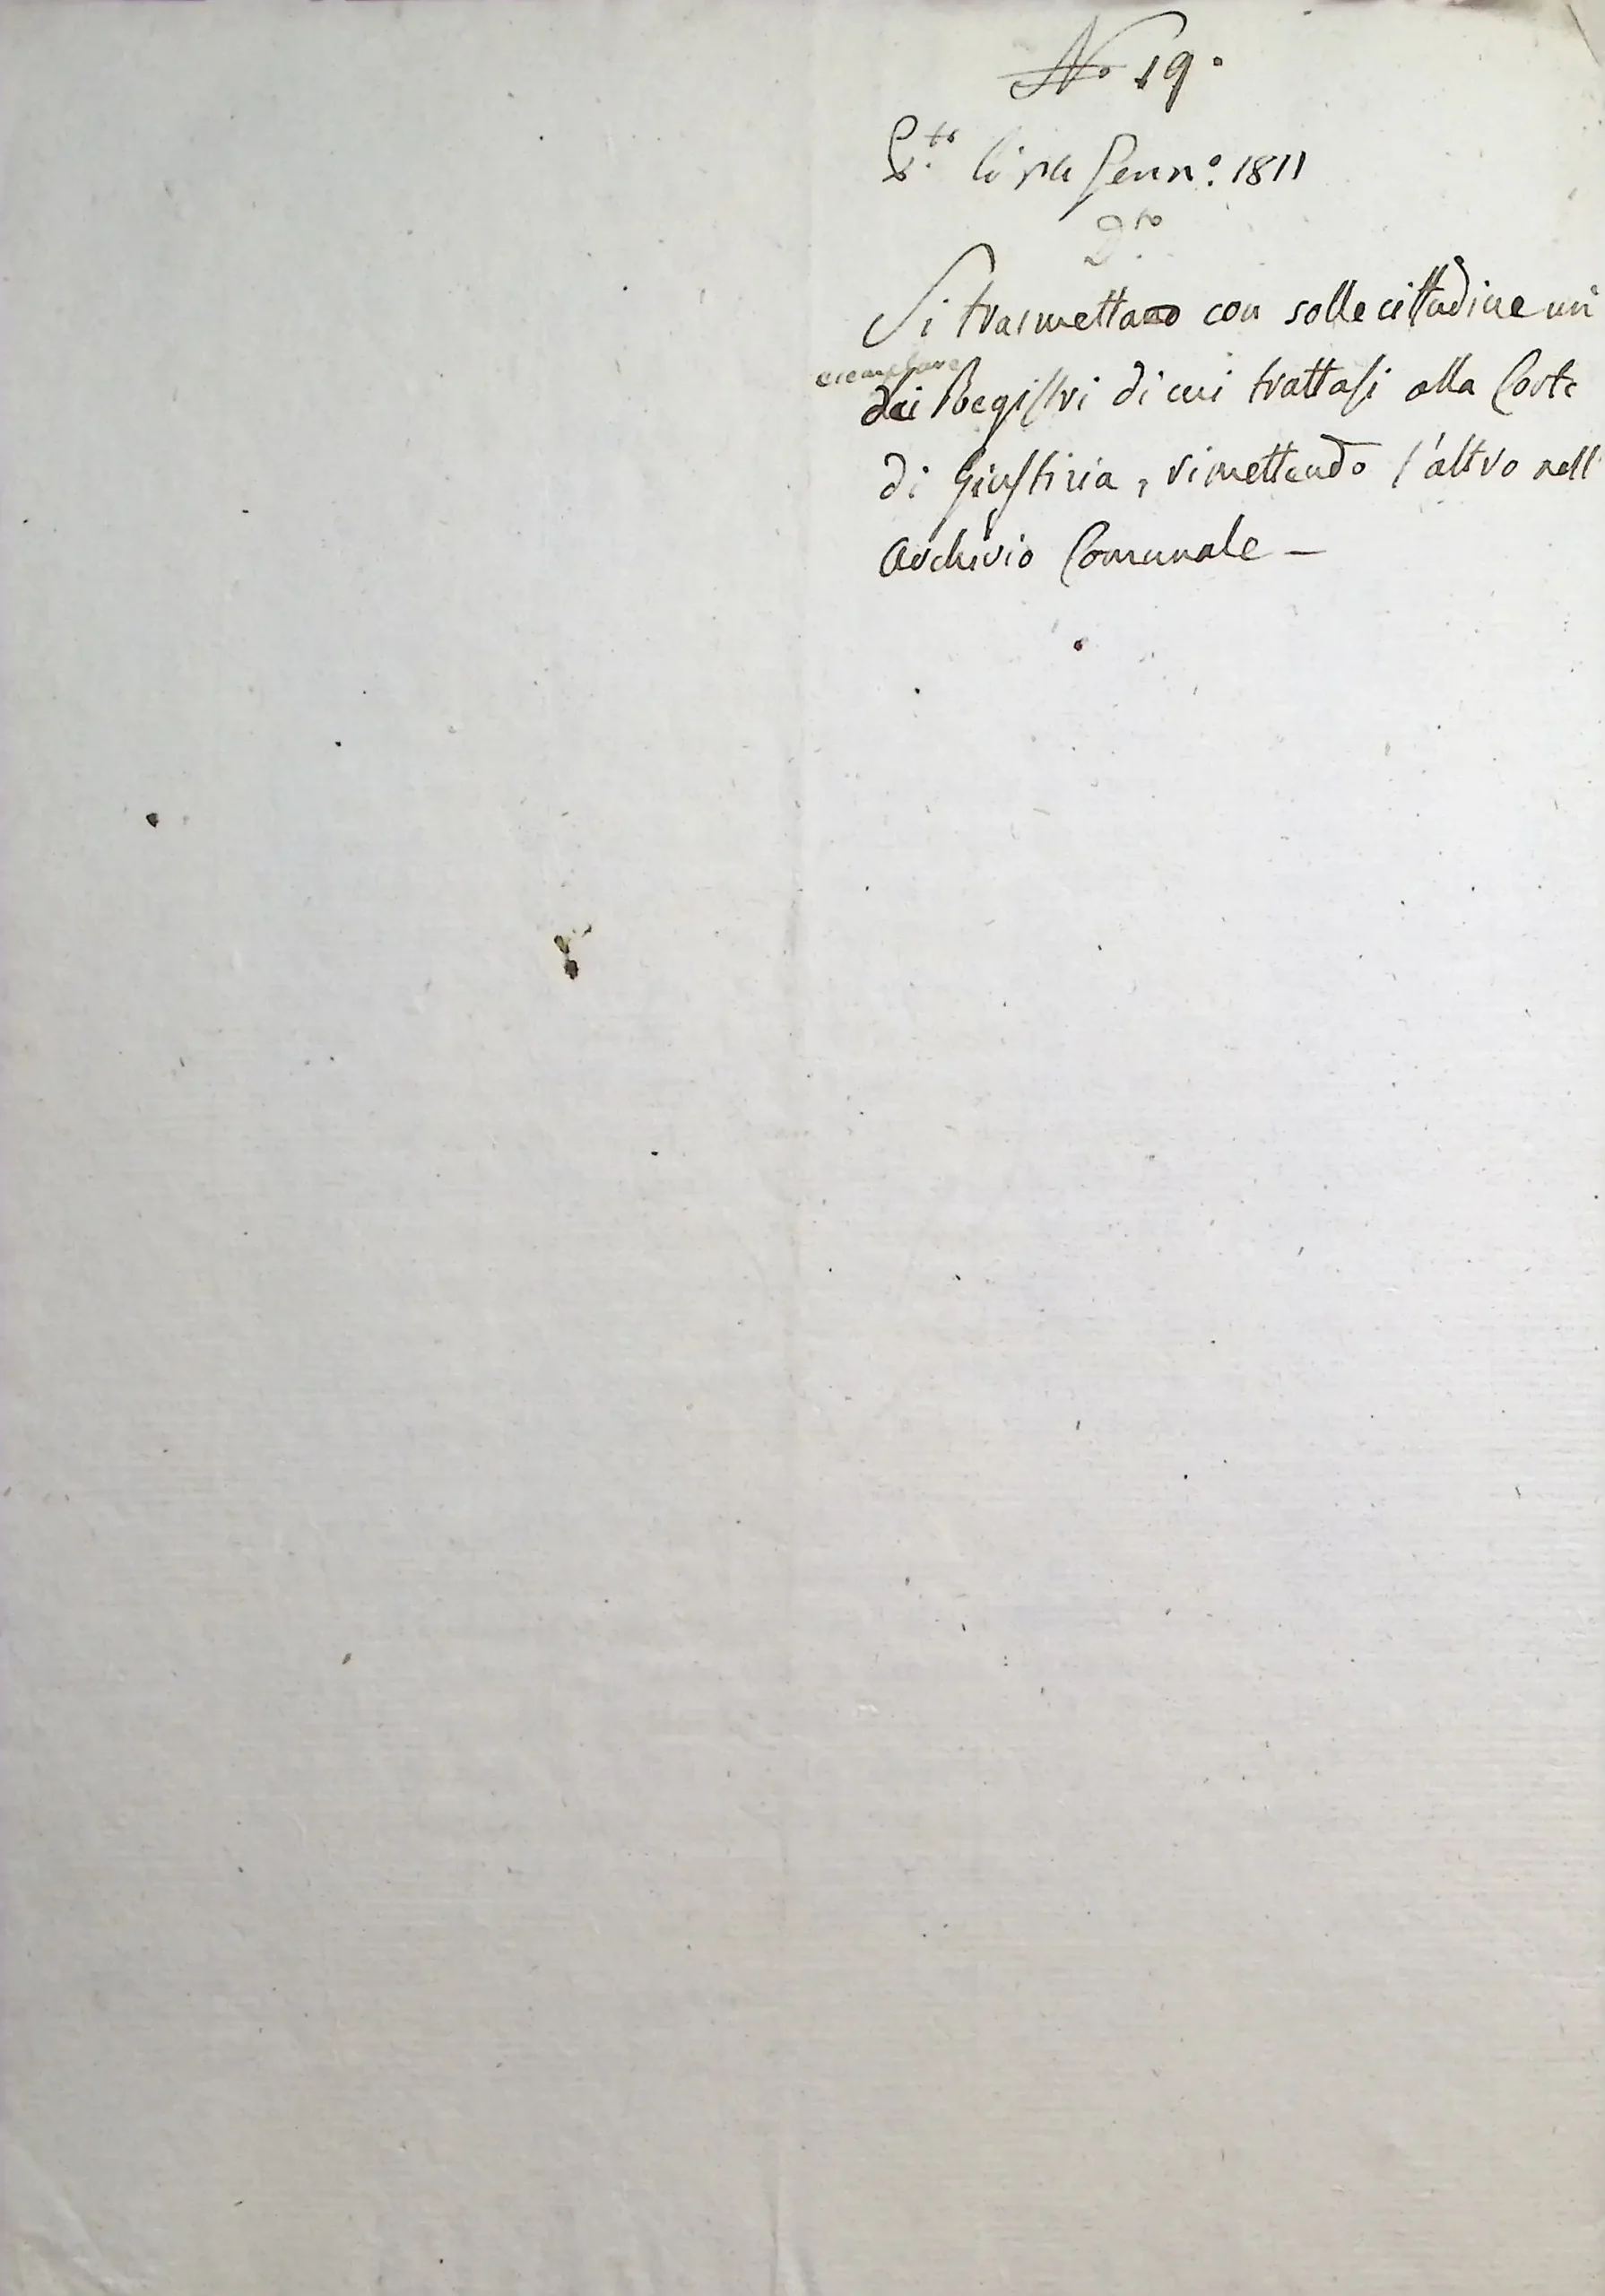 No 19.
P.to li Genn.o 1811
D.to
Si trasmettano con sollecittudine un
esemplare
dei Registri di cui trattasi alla Corte
di Giustizia, rimettendo l'altro nell'
Archivio Comunale —